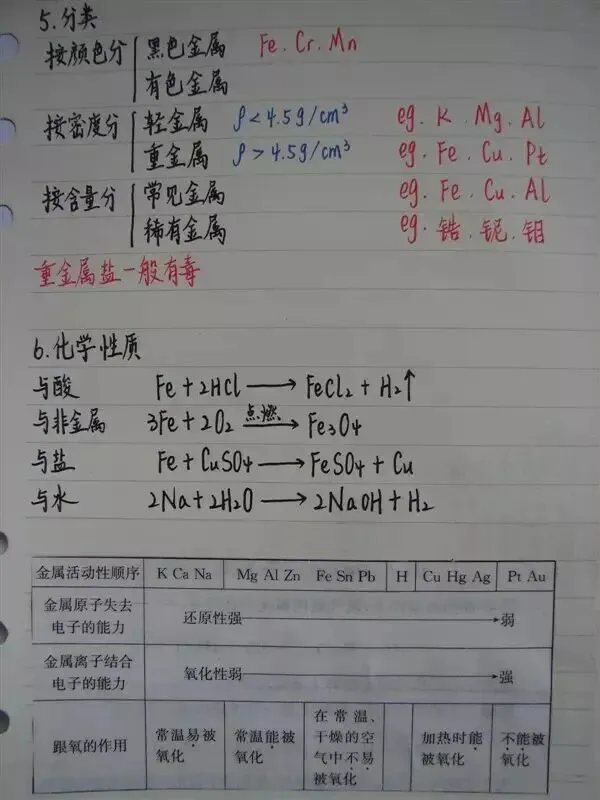 5.分类
按颜色分 黑色金属 Fe.Cr.Mn
有色金属
按密度分 轻金属 ρ<4.5g/cm³ eg. K.Mg.Al
重金属 ρ>4.5g/cm³ eg. Fe.Cu.Pt
按含量分 常见金属 eg. Fe.Cu.Al
稀有金属 eg. 锆.铌.钼
重金属盐一般有毒
6.化学性质
与酸 Fe+2HCl→FeCl₂+H₂↑
与非金属 3Fe+2O₂ 点燃→ Fe₃O₄
与盐 Fe+CuSO₄→FeSO₄+Cu
与水 2Na+2H₂O→2NaOH+H₂
金属活动性顺序 K Ca Na Mg Al Zn Fe Sn Pb H Cu Hg Ag Pt Au
金属原子失去
电子的能力
还原性强→弱
金属离子结合
电子的能力
氧化性弱→强
跟氧的作用
常温易被
氧化
常温能被
氧化
在常温、
干燥的空
气中不易
被氧化
加热时能
被氧化
不能被
氧化